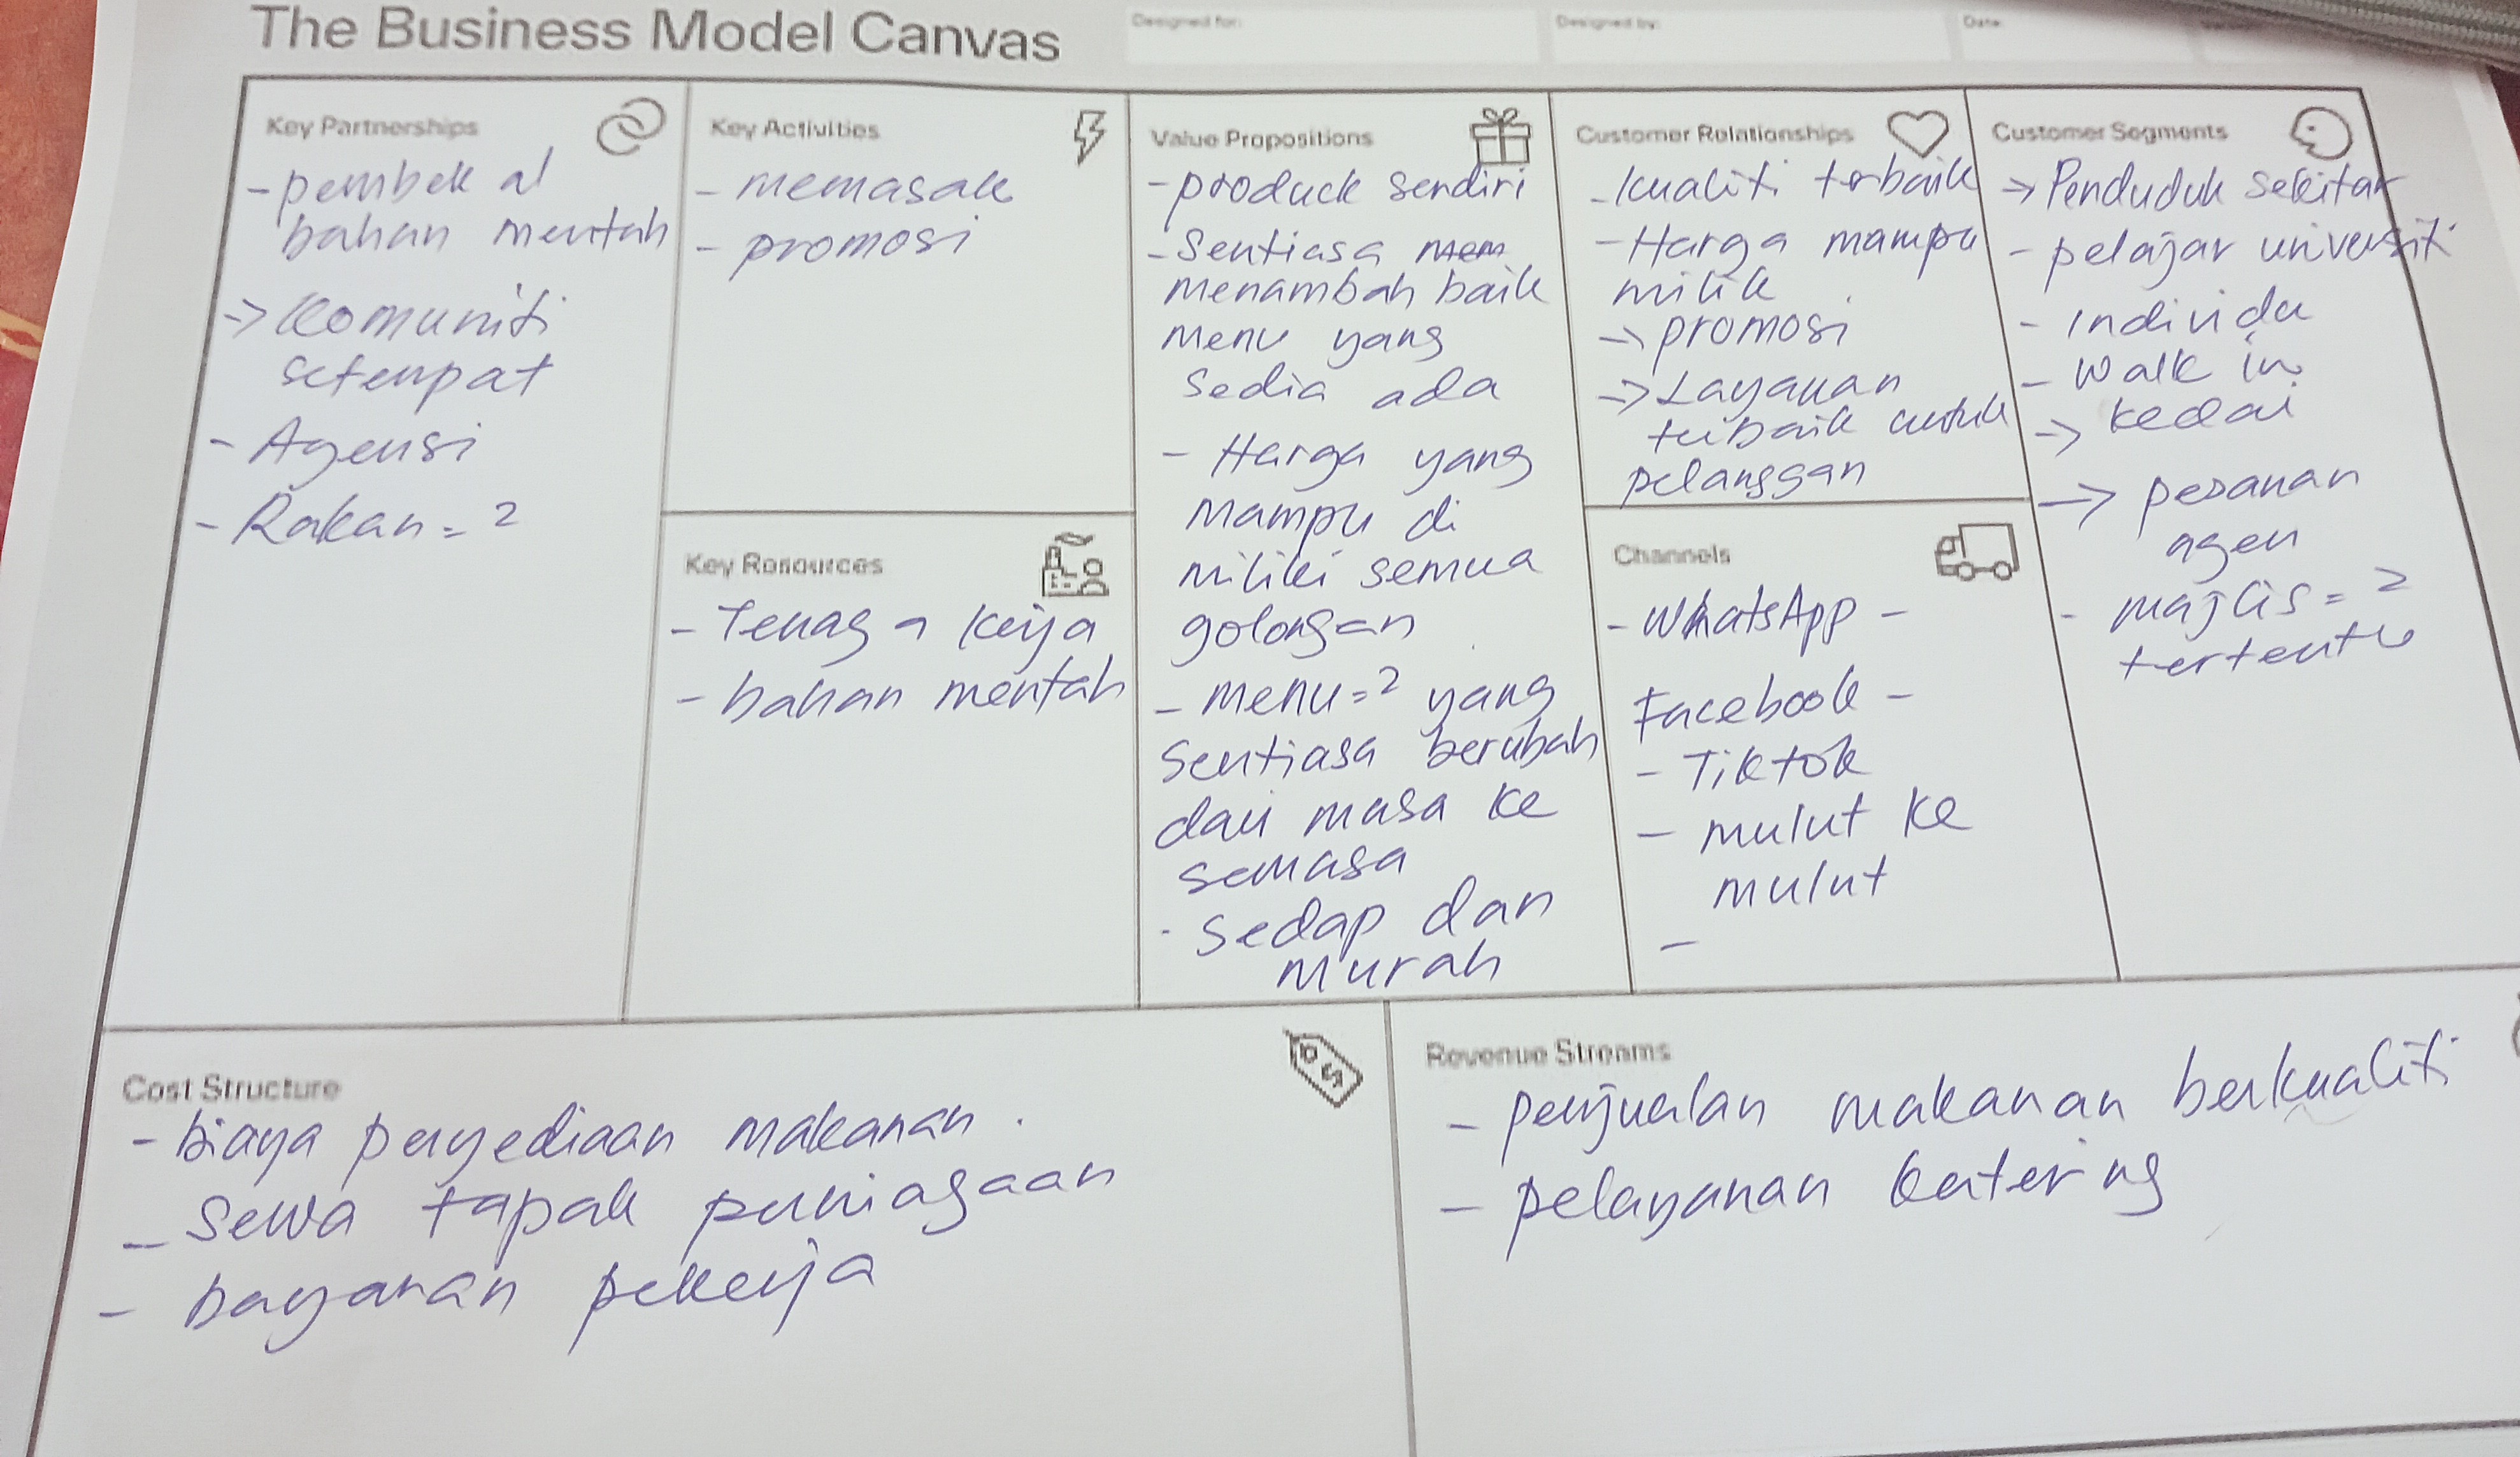 The Business Model Canvas
Designed for:
Designed by:
Date:
Key Partnerships
- pembekal
bahan mentah
→ Komuniti
setempat
- Agensi
- Rakan = 2
Key Activities
- memasak
- promosi
Key Resources
- Tenaga kerja
- bahan mentah
Value Propositions
- produck sendiri
- Sentiasa mem
menambah baik
menu yang
sedia ada
- Harga yang
mampu di
miliki semua
golongan
- menu=2 yang
sentiasa berubah
dari masa ke
semasa
- sedap dan
murah
Customer Relationships
- kualiti terbaik
- Harga mampu
milik
→ promosi
→ Layanan
terbaik untuk
pelanggan
Channels
- WhatsApp -
Facebook -
- Tiktok
- mulut ke
mulut
-
Customer Segments
→ Penduduk sekitar
- pelajar universiti
- Individu
- Walk in
→ kedai
→ pesanan
agen
- majlis = 2
tertentu
Cost Structure
- biaya penyediaan makanan.
- sewa tapak perniagaan
- bayaran pekerja
Revenue Streams
- penjualan makanan berkualiti
- pelayanan katering